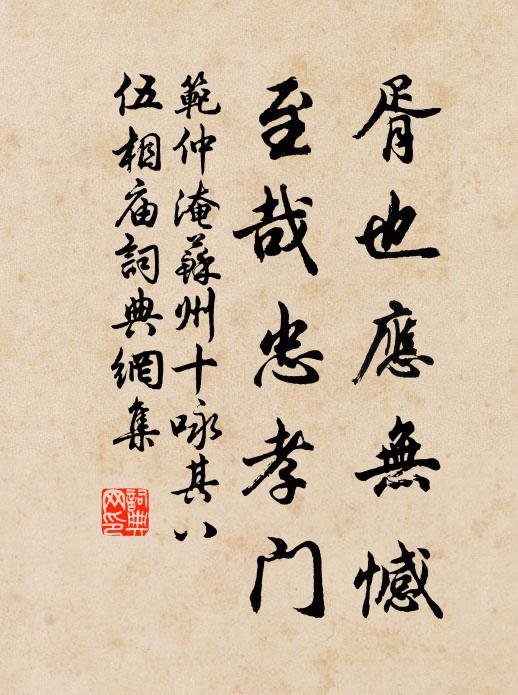 胥也應無憾
至哉忠孝门
範仲淹蘇州十咏其八
伍相庙詞典網集
詞典
网印